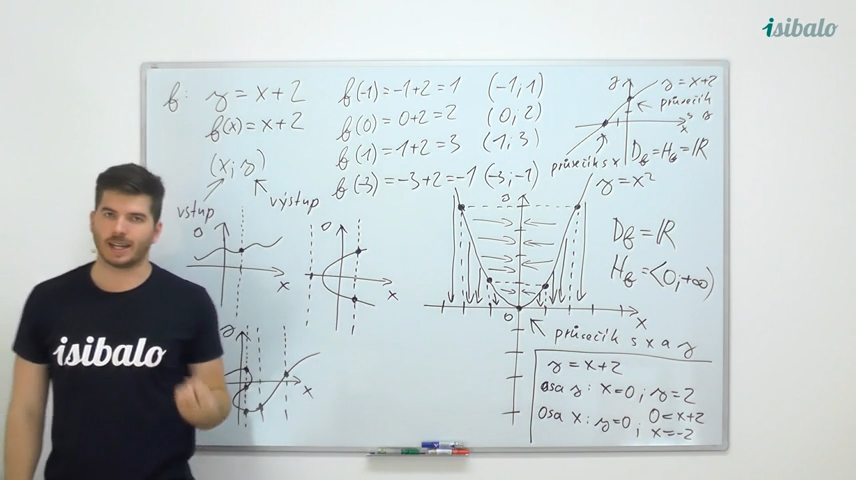 isibalo
f: y = x+2
f(x) = x+2
(x; y)
vstup
výstup
f(-1) = -1+2 = 1 (-1; 1)
f(0) = 0+2 = 2 (0; 2)
f(1) = 1+2 = 3 (1; 3)
f(-3) = -3+2 = -1 (-3; -1)
y
y = x+2
průsečík
s y
x
průsečík s x
Df = Hf = ℝ
y = x²
0
0
x
Df = ℝ
Hf = <0; +∞)
průsečík s x a y
0
x
0
x
x
y = x+2
osa y: x=0; y=2
osa x: y=0; 0 = x+2
x = -2
isibalo